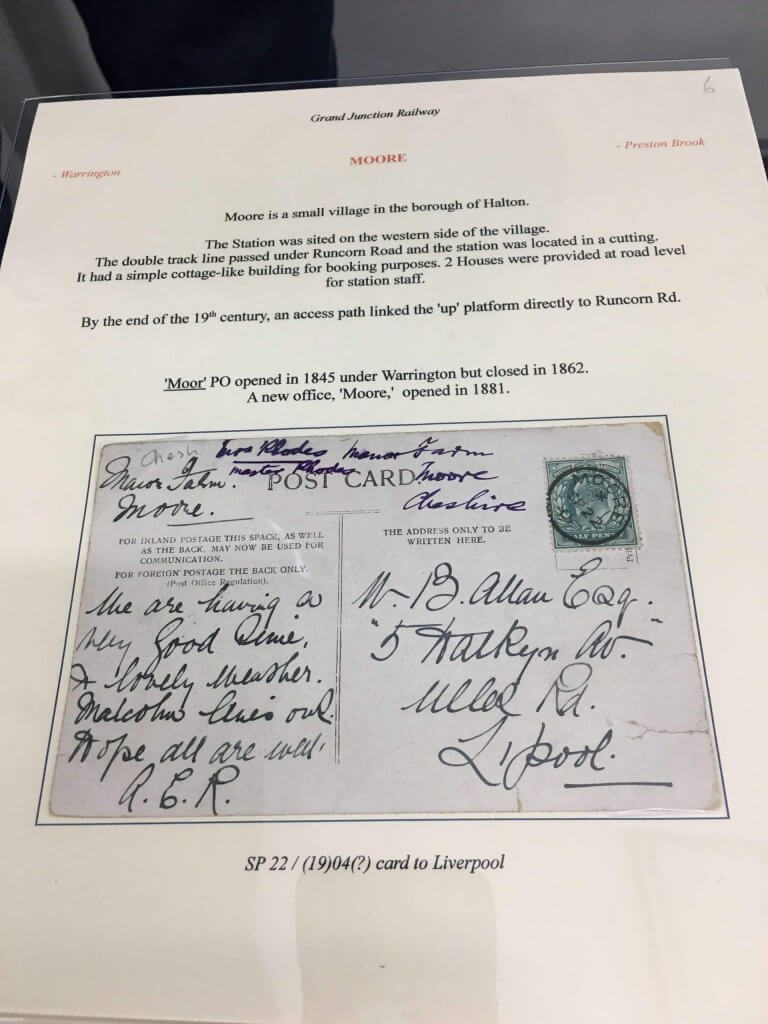 6
Grand Junction Railway
- Warrington
MOORE
- Preston Brook
Moore is a small village in the borough of Halton.
The Station was sited on the western side of the village.
The double track line passed under Runcorn Road and the station was located in a cutting.
It had a simple cottage-like building for booking purposes. 2 Houses were provided at road level
for station staff.
By the end of the 19th century, an access path linked the 'up' platform directly to Runcorn Rd.
'Moor' PO opened in 1845 under Warrington but closed in 1862.
A new office, 'Moore,' opened in 1881.
Rhodes Manor Farm
Master Rhodes Moore
Cheshire
Manor Farm.
Moore.
POST CARD
FOR INLAND POSTAGE THIS SPACE, AS WELL
AS THE BACK, MAY NOW BE USED FOR
COMMUNICATION.
FOR FOREIGN POSTAGE THE BACK ONLY.
(Post Office Regulation).
We are having a
very Good Time,
& lovely weather.
Malcolm lives out.
Hope all are well.
A. E. R.
THE ADDRESS ONLY TO BE
WRITTEN HERE.
MOORE
HALF PENNY
W. B. Allan Esq.
"5 Halkyn Av."
Ullet Rd.
L'pool.
SP 22 / (19)04(?) card to Liverpool